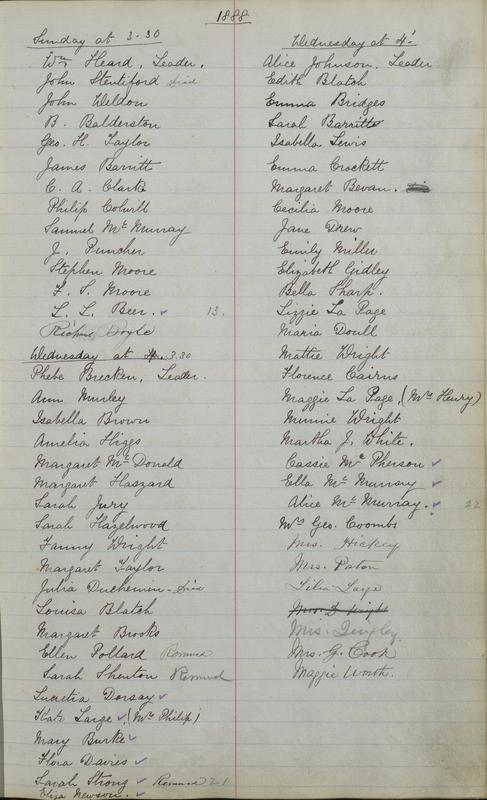 1888
Sunday at 3-30
Wm Heard, Leader.
John Stentiford died
John Weldon
B. Balderston
Geo. H. Taylor
James Barritt
C. A. Clark
Philip Colwill
Samuel Mc Murray
J. Puncher
Stephen Moore
F. S. Moore
L. L. Beer. ✓ 13.
Richard Doyle
Wednesday at 3.30
Phebe Brecken, Leader.
Ann Murley
Isabella Brown
Amelia Higgs
Margaret Mc Donald
Margaret Haszard
Sarah Jury
Sarah Hazelwood
Fanny Wright
Margaret Taylor
Julia Duchemin - died
Louisa Blatch
Margaret Brooks
Ellen Pollard Removed
Sarah Shenton Removed
Lucretia Dorsay ✓
Kate Large ✓ (Mrs Philip)
Mary Burke ✓
Flora Davies ✓
Sarah Strong ✓ Removed 21
Eliza Newson. ✓
Wednesday at 4'-
Alice Johnson, Leader
Edith Blatch
Emma Bridges
Sarah Barritt
Isabella Lewis
Emma Crockett
Margaret Bevan.
Cecilia Moore
Jane Drew
Emily Miller
Elizabeth Gidley
Bella Sharp.
Lizzie La Page
Maria Doull
Mattie Wright
Florence Cairns
Maggie La Page, (Mrs Henry)
Minnie Wright
Martha J. White.
Cassie Mc Pherson ✓
Ella Mc Murray ✓
Alice Mc Murray. ✓ 22
Mrs Geo. Coombs
Mrs. Hickey
Mrs. Paton
Lilia Large
Mrs. D Wright
Mrs. Tingley
Mrs. G. Cook
Maggie Worth.